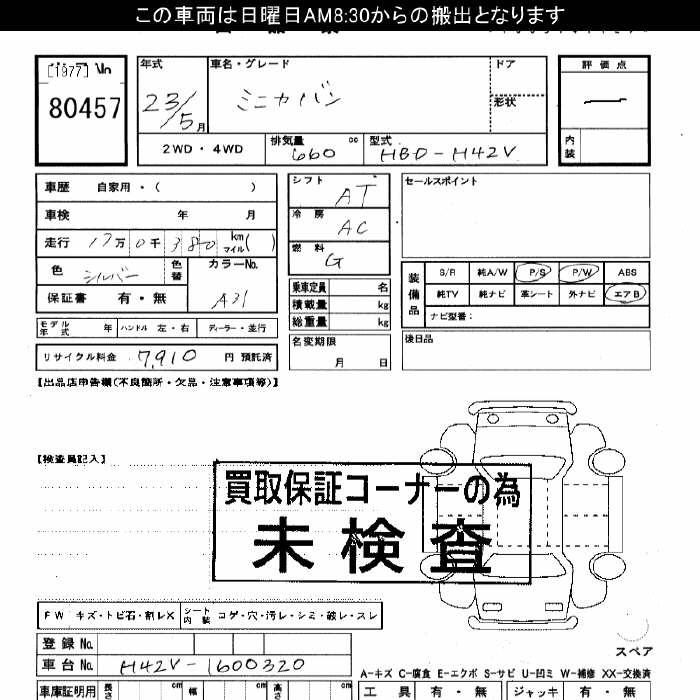 この車両は日曜日AM8:30からの搬出となります
[1977]
80457
年式
23/5月
車名・グレード
ミニカバン
ドア
形状
評価点
内装
2WD・4WD
排気量 660 cc
型式 HBD-H42V
車歴 自家用・( )
車検 年 月
走行 17万0千380 km マイル( )
色 シルバー
色替
カラーNo. A31
保証書 有・無
シフト AT
冷房 AC
燃料 G
乗車定員 名
積載量 kg
総重量 kg
名変期限 月 日
セールスポイント
装備品
S/R 純A/W P/S P/W ABS
純TV 純ナビ 革シート 外ナビ エアB
ナビ型番:
後日品
モデル年式 年 ハンドル 左・右 ディーラー・並行
リサイクル料金 7,910 円 預託済
【出品店申告欄(不良箇所・欠品・注意事項等)】
【検査員記入】
買取保証コーナーの為
未検査
FW キズ・トビ石・割レX シート内装 コゲ・穴・汚レ・シミ・破レ・スレ
登録No.
車台No. H42V-1600320
スペア
A-キズ C-腐食 E-エクボ S-サビ U-凹ミ W-補修 XX-交換済
車庫証明用 長さ cm 幅 cm 高さ cm
工具 有・無 ジャッキ 有・無